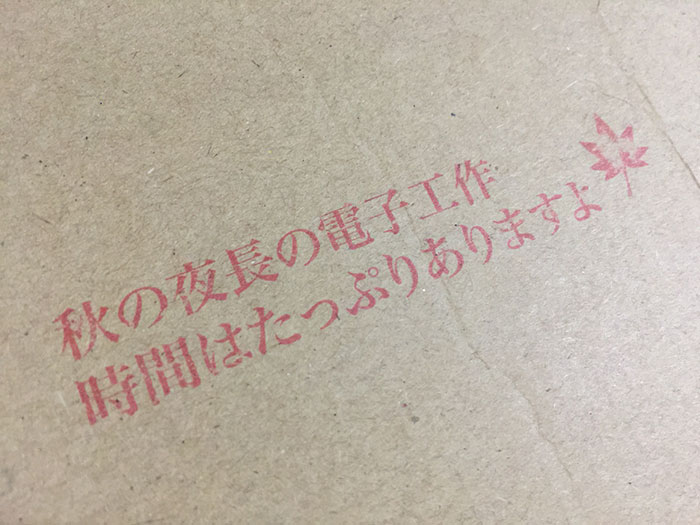 秋の夜長の電子工作
時間はたっぷりありますよ